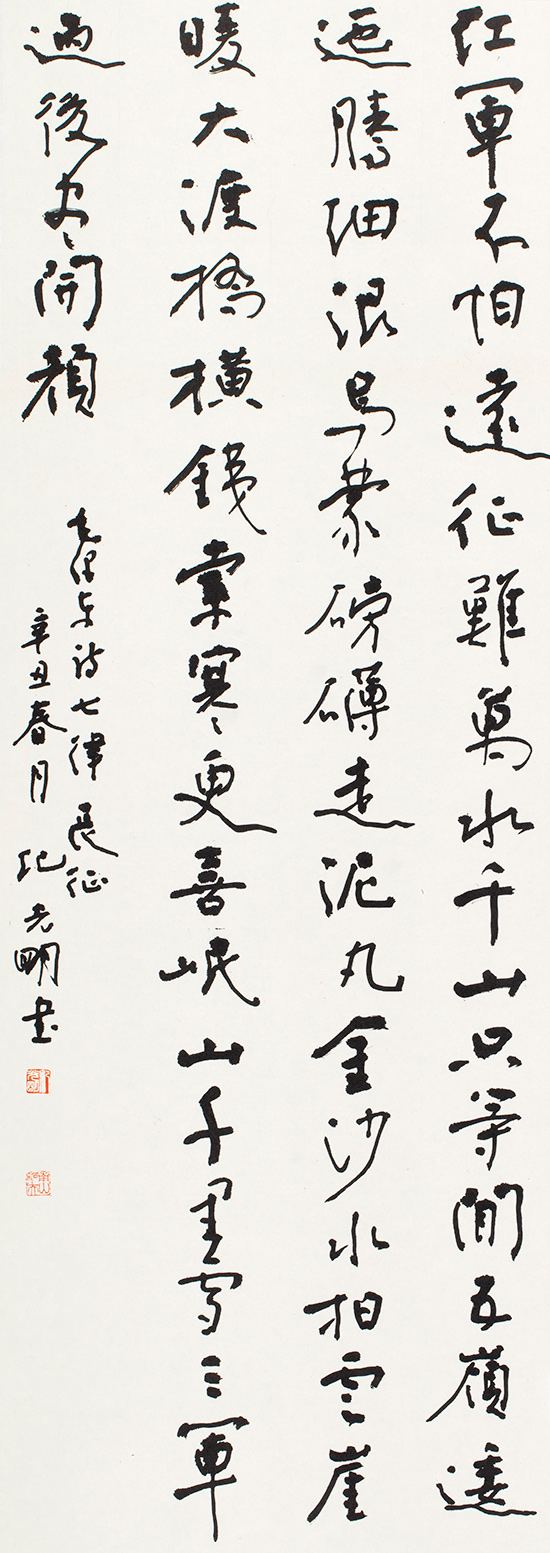 紅軍不怕遠征難萬水千山只等閒五嶺逶
迤騰細浪烏蒙磅礴走泥丸金沙水拍雲崖
暖大渡橋横銕索寒更喜岷山千里雪三軍
過後盡開顔
毛澤东詩七律長征
辛丑春月紀光明書